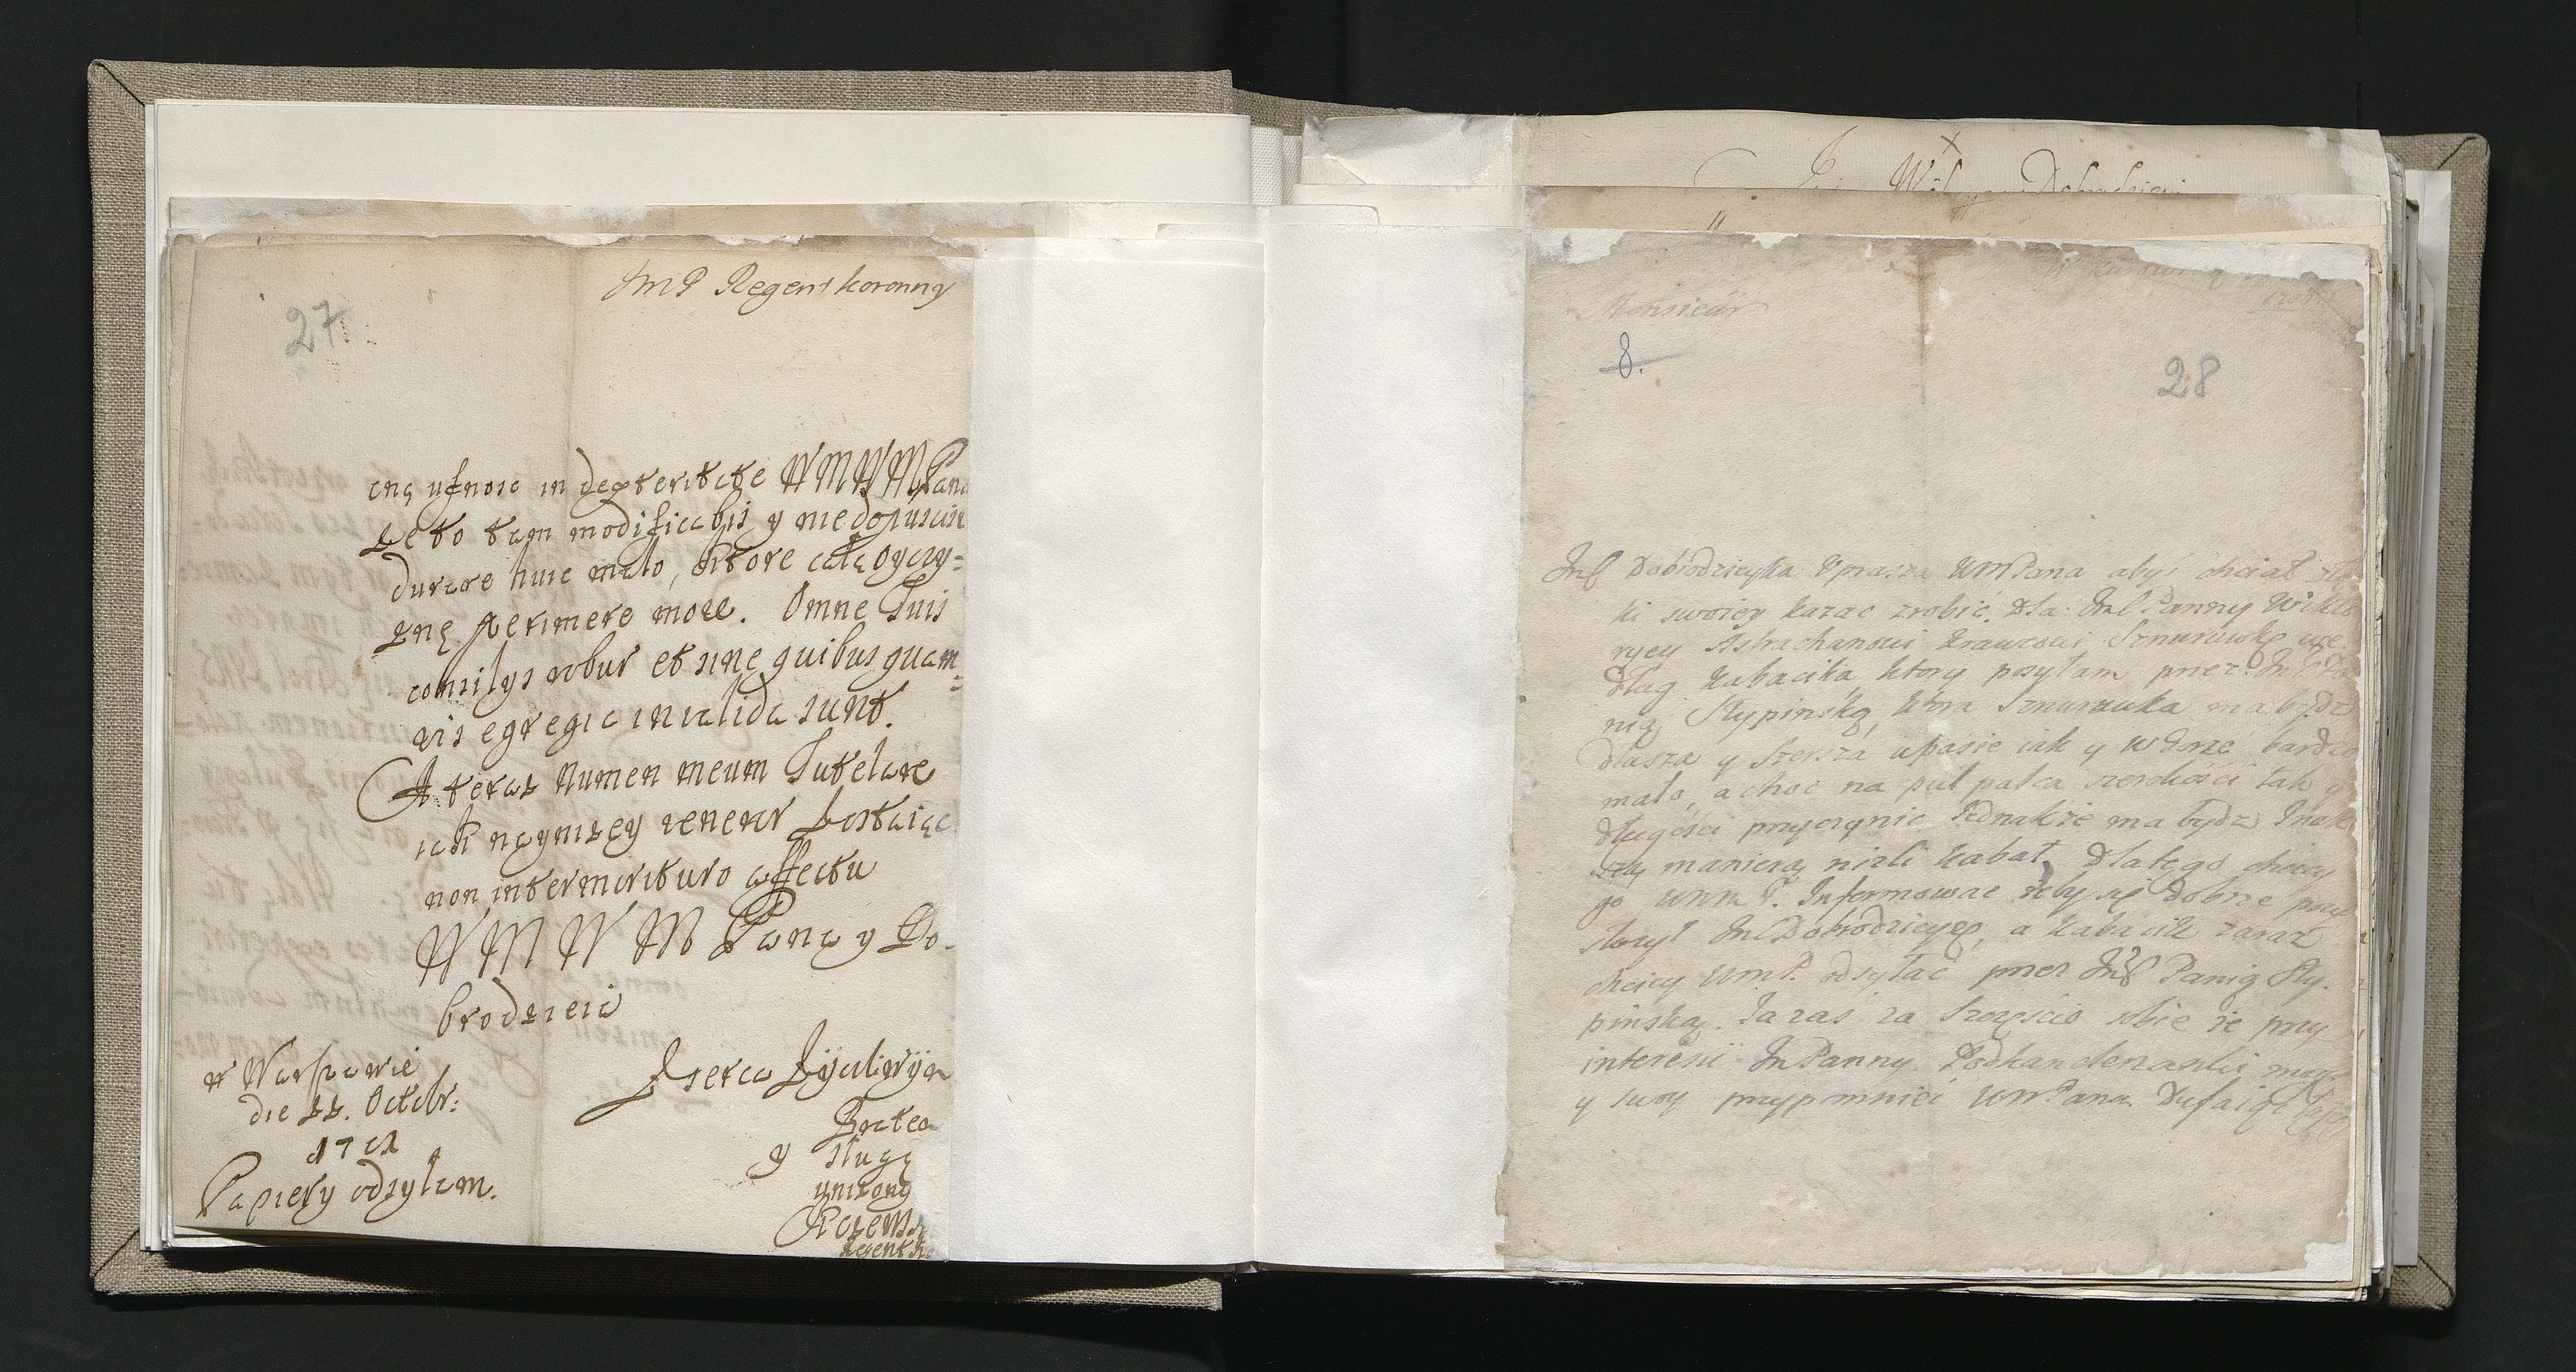 JmP Regent koronny
27.
cną ufnosc in dexteritate WMWMPana
ze to tam modificabis y niedopuscisz
durare huic malo, ktore całą oyczy=
znę perimere moze. Omne Tuis
consilys robur et sine quibus quam=
vis egregia invalida sunt.
A teraz Numen meum Tutelare
iak nayniżey veneror zostaiąc
non intermorituro affectu
WMWM Pana y Do-
brodzieia
w Warszawie
die 22. Octobr:
Papiery odsyłam.
szerze życzliwym
Bratem
y sługą
unizony
Regent
Dobrodzieiu
Monsieur
8.
28
Dobrodzieyka Uprasza WMPana abyś chciał
ki swoiey kazac zrobić. Dla Panny Wikto
ryey Astrachanowi krawcowi Sznurowkę we
dług Kabacika, ktory posyłam przez
nią Stypinską, ktora Sznurowka ma bydz
dłuzsza y szersza w pasie iak y w Gorze bardzo
mało, a choc na puł palca szerokości tak y
długości przyczynic Jednakże ma bydz Inak
szą manierą niżli kabat. Dlatego chciey
go WMM P. Informowac zeby się dobrze przy
słuzył Dobrodzieyce, a Kabacik zaraz
chciey WMP. odsyłać przez Panią Sty-
pinską. Ja zas za szczęscie sobie ze przy
interesie Panny mogę
y swoy przypomniec WMPana